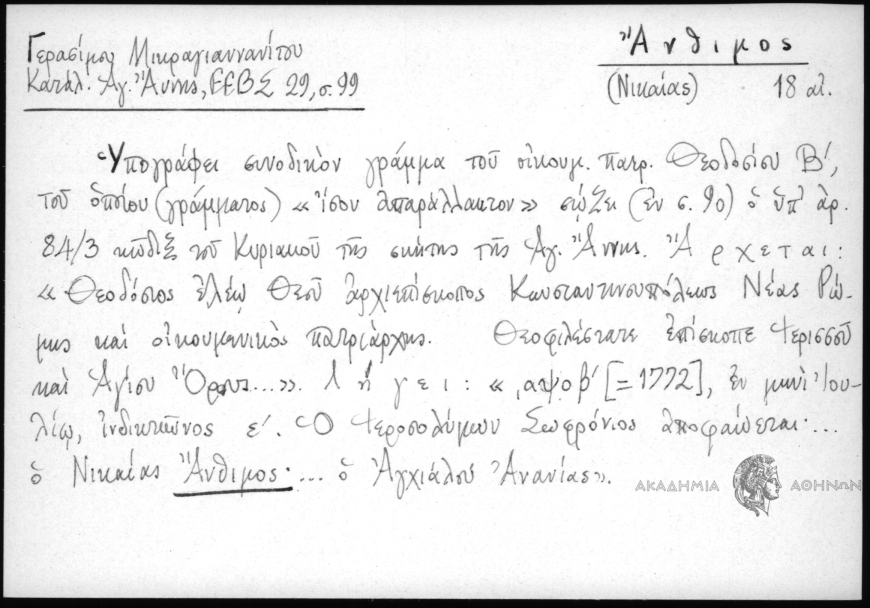 Γερασίμου Μικραγιαννανίτου
Κατάλ. Ἁγ. Ἄννης, ΕΕΒΣ 29, σ. 99
Ἄνθιμος
(Νικαίας) 18 αἰ.
Ὑπογράφει συνοδικὸν γράμμα τοῦ οἰκουμ. πατρ. Θεοδοσίου Β΄,
τοῦ ὁποίου (γράμματος) «ἴσον ἀπαράλλακτον» σῴζει (ἐν σ. 90) ὁ ὑπ' ἀρ.
84/3 κῶδιξ τοῦ Κυριακοῦ τῆς σκήτης τῆς Ἁγ. Ἄννης. Ἄρχεται:
«Θεοδόσιος ἐλέῳ Θεοῦ ἀρχιεπίσκοπος Κωνσταντινουπόλεως Νέας Ῥώ-
μης καὶ οἰκουμενικὸς πατριάρχης. Θεοφιλέστατε ἐπίσκοπε Ἱερισσοῦ
καὶ Ἁγίου Ὄρους...». Λήγει: «͵αψοβ΄ [=1772], ἐν μηνὶ Ἰου-
λίῳ, ἰνδικτιῶνος ε΄. Ὁ Ἱεροσολύμων Σωφρόνιος ἀποφαίνεται· ...
ὁ Νικαίας Ἄνθιμος· ... ὁ Ἀγχιάλου Ἀνανίας».
ΑΚΑΔΗΜΙΑ ΑΘΗΝΩΝ